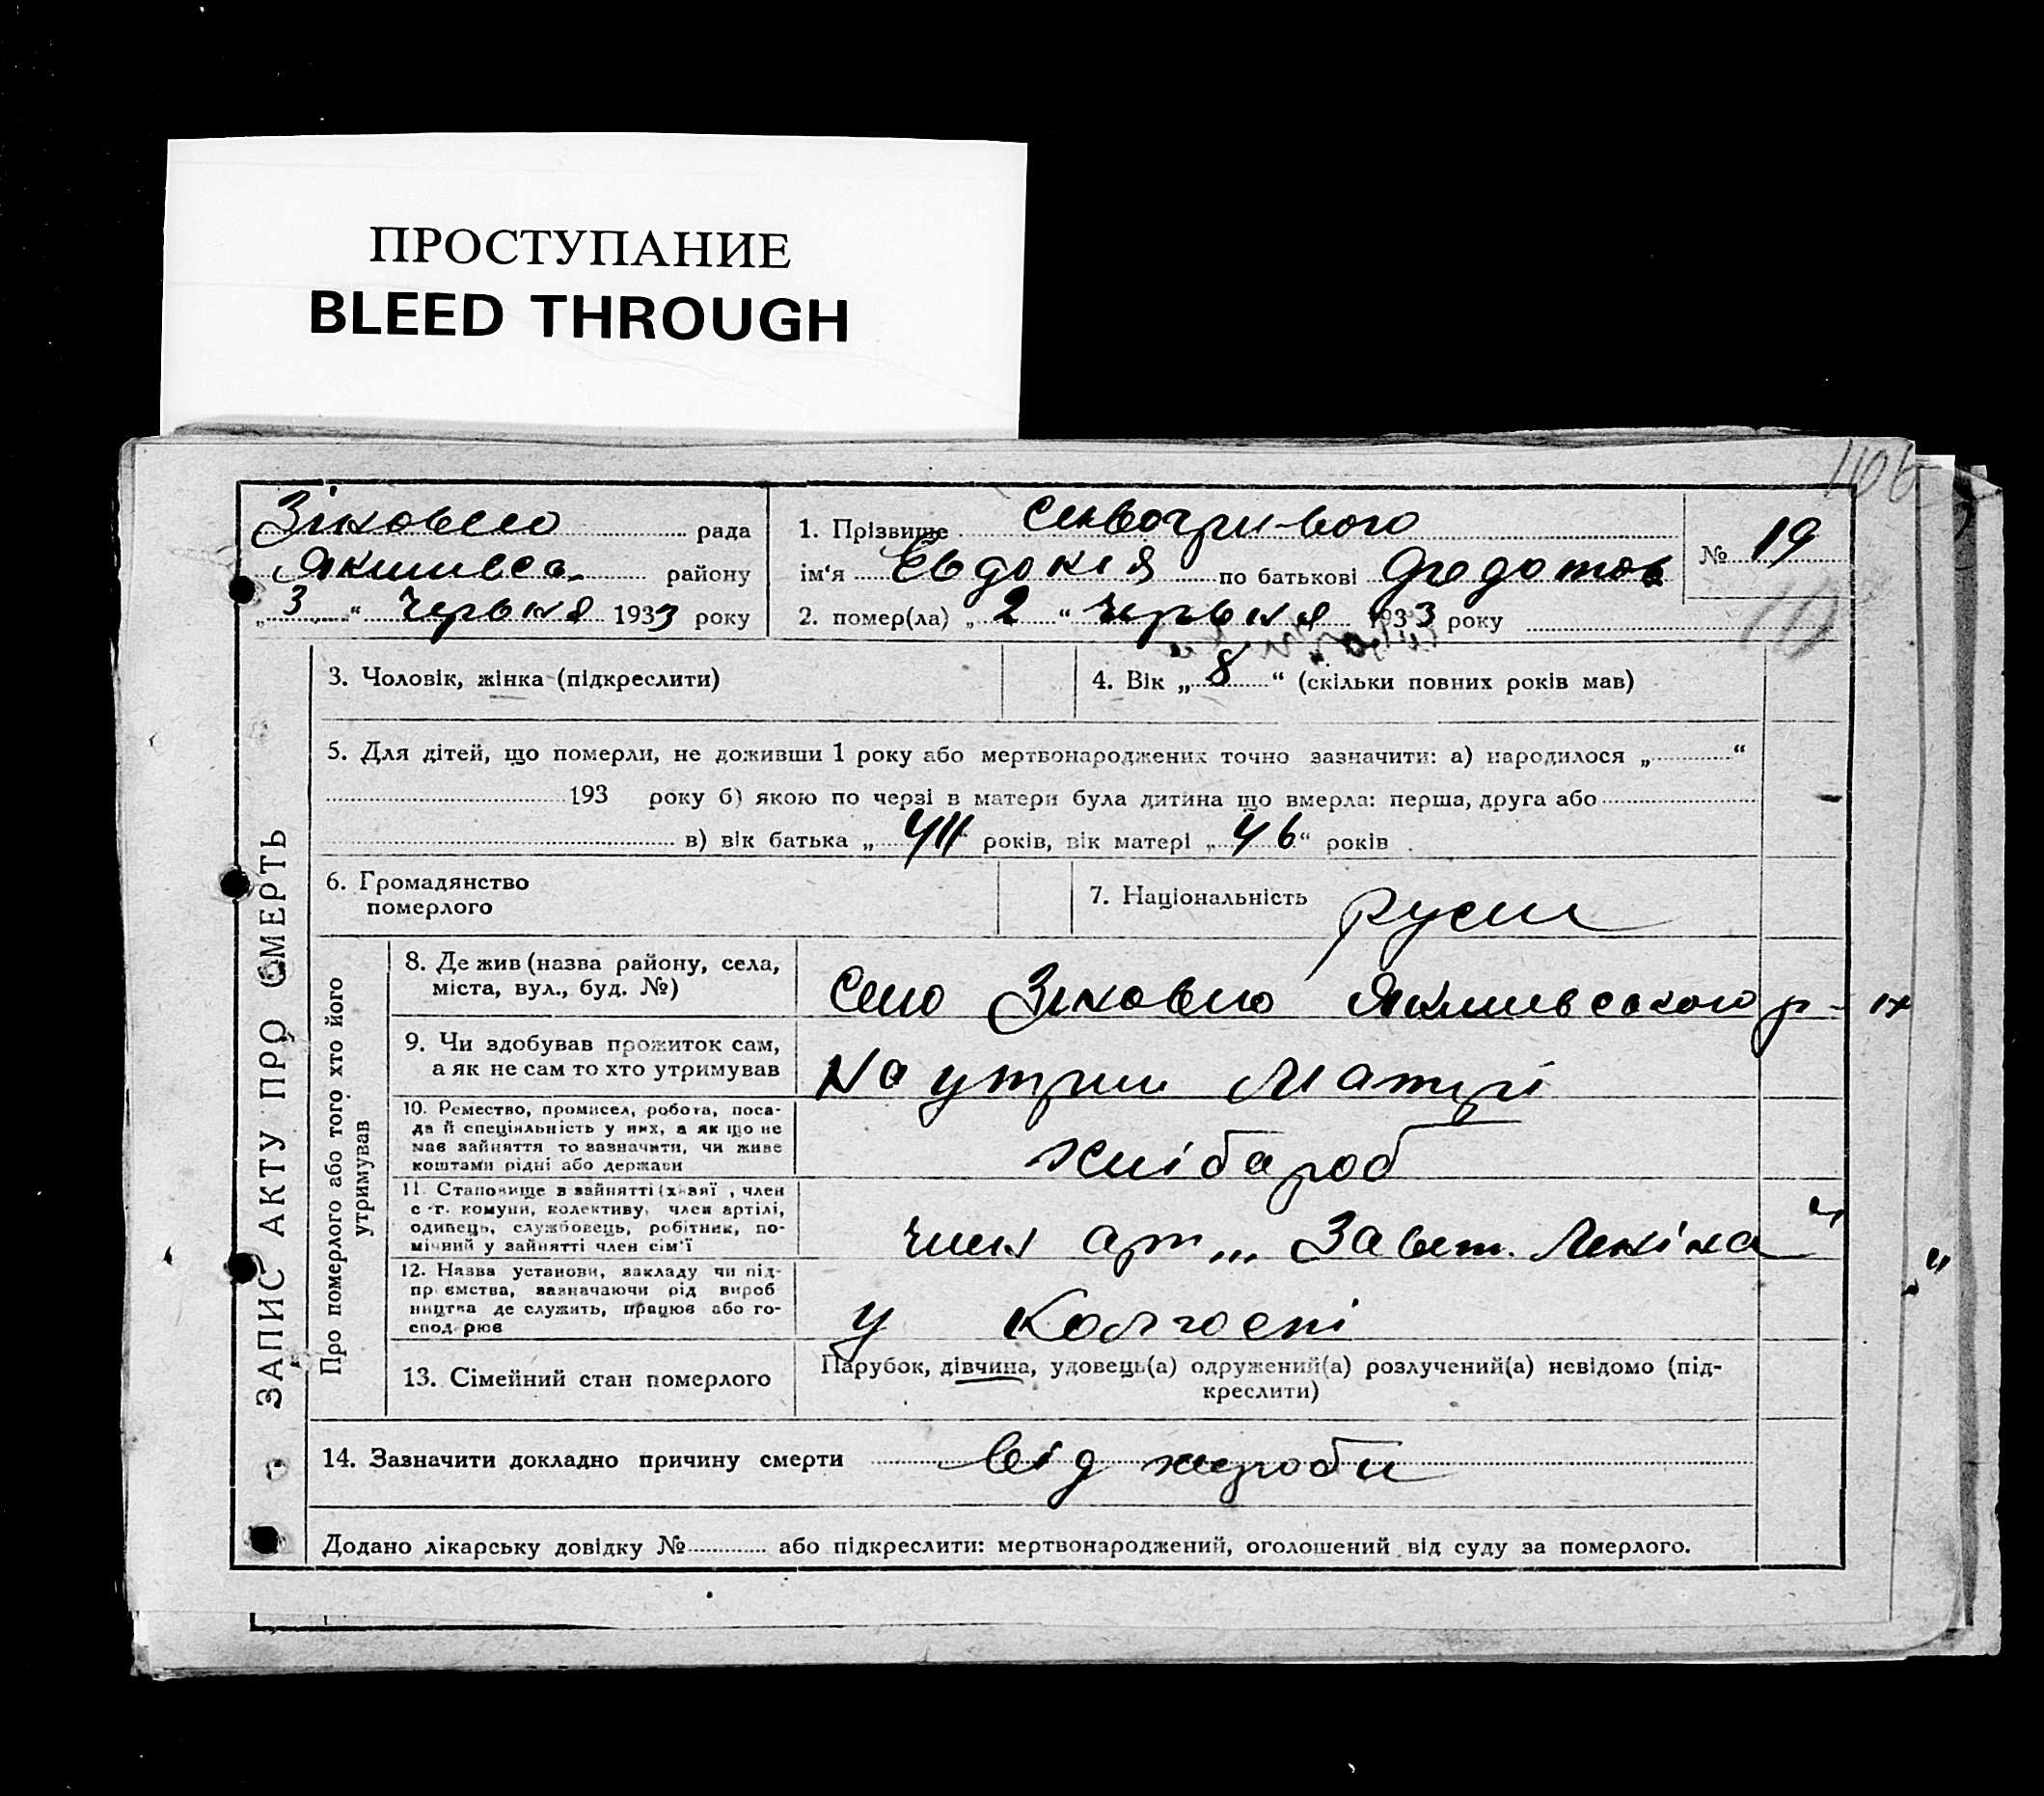 ПРОСТУПАНИЕ
BLEED THROUGH
106
рада
району
„ 3 “ Червня 1933 року
1. Прізвище
ім'я Євдокія по батькові Федотов
2. помер(ла) „ 2 “ Червня 1933 року
№ 19
3. Чоловік, жінка (підкреслити)
4. Вік „ 8 “ (скільки повних років мав)
5. Для дітей, що померли, не доживши 1 року або мертвонароджених точно зазначити: а) народилося „ “
193 року б) якою по черзі в матери була дитина що вмерла: перша, друга або
в) вік батька „ 44 “ років, вік матері „ 46 “ років
6. Громадянство
померлого
7. Національність
ЗАПИС АКТУ ПРО СМЕРТЬ
Про померлого або того хто його
утримував
8. Де жив (назва району, села,
міста, вул., буд. №)
Село
9. Чи здобував прожиток сам,
а як не сам то хто утримував
На утрим Матері
10. Ремество, промисел, робота, поса-
да й спеціяльність у них, а як що не
мав зайняття то зазначити, чи живе
коштами рідні або держави
Хлібароб
11. Становище в зайнятті (хазяї, член
с-г. комуни, колективу, член артілі,
одинець, службовець, робітник, по-
мічний у зайнятті член сім'ї
член арт „ Завет. Леніна “
12. Назва установи, закладу чи під-
приємства, зазначаючи рід вироб
ництва де служить, працює або го-
сподарює
у Колгоспі
13. Сімейний стан померлого
Парубок, дівчина, удовець(а) одружений(а) розлучений(а) невідомо (під-
креслити)
14. Зазначити докладно причину смерти від хероби
Додано лікарську довідку № або підкреслити: мертвонароджений, оголошений від суду за померлого.